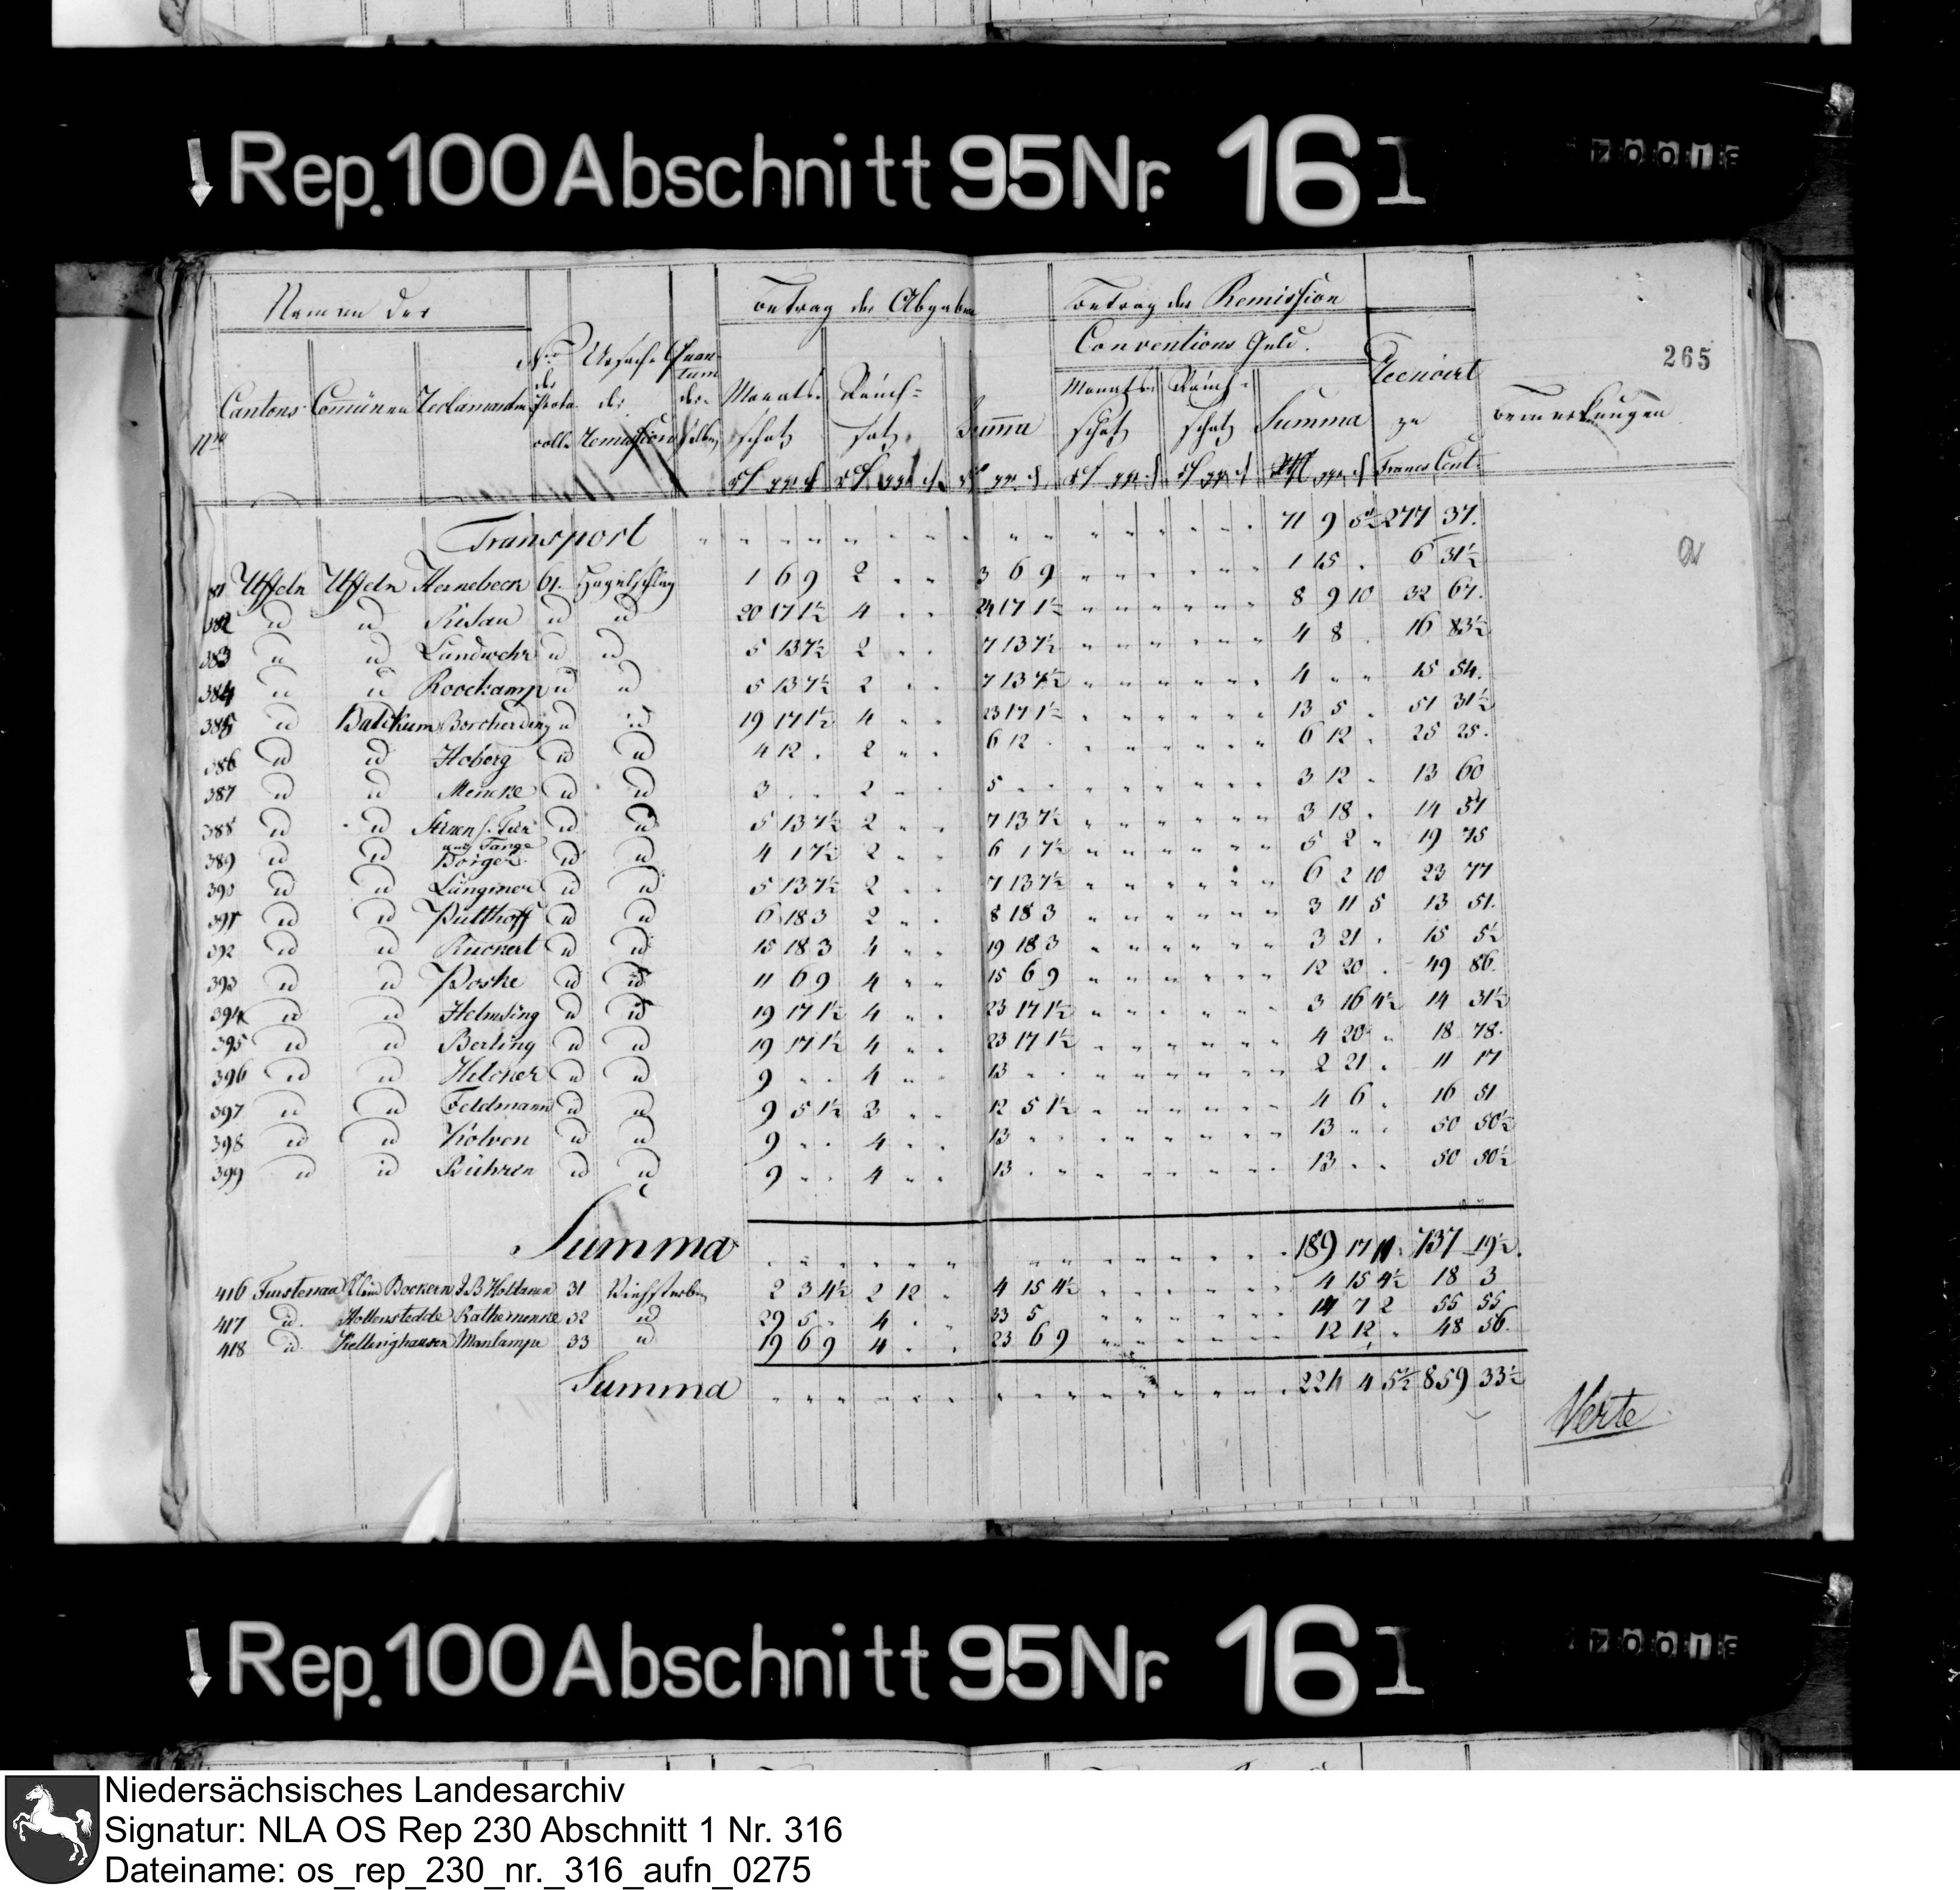 Rep. 100 Abschnitt 95 Nr. 16 1
265
Namen der
Betrag der Abgaben
Betrag der Remission
Conventions Geld.
Reducirt
zu
Bemerkungen
Nro
Cantons
Communen
Reclamanten
Nro der Protocolle
Ursache der Remission
Quantum derselben
Monatsschatz
Rauchschatz
Summa
Monatsschatz
Rauchschatz
Summa
Francs Cent.
Transport 71 9 5½ 277 37.
81 Uffeln Uffeln Hernebeck 61. Hagelschlag 1 6 9 2 " " 3 6 9 1 15 . 6 31½
382 id id Risau id id 20 17 1½ 4 . . 24 17 1½ 8 9 10 32 67.
383 id id Landwehr id id 5 13 7½ 2 . . 7 13 7½ 4 8 . 16 83½
384 id id Roockamp id id 5 13 7½ 2 . . 7 13 7½ 4 " " 15 54.
385 id Balkum Borcherding id id 19 17 1½ 4 " " 23 17 1½ 13 5 . 51 31½
386 id id Hoberg id id 4 12 . 2 " . 6 12 . 6 12 . 25 25.
387 id id Mencke id id 3 . . 2 " . 5 . . 3 12 " 13 60
388 id id id id 5 13 7½ 2 " . 7 13 7½ 3 18 . 14 57
389 id id Börger id id 4 1 7½ 2 " . 6 1 7½ 5 2 " 19 75
390 id id Längmer id id 5 13 7½ 2 . . 7 13 7½ 6 2 10 23 77
391 id id Putthoff id id 6 18 3 2 " . 8 18 3 3 11 5 13 51.
392 id id Ruckert id id 15 18 3 4 " " 19 18 3 3 21 . 15 5½
393 id id Poske id id 11 6 9 4 " " 15 6 9 12 20 . 49 86.
394 id id Helmsing id id 19 17 1½ 4 " . 23 17 1½ 3 16 4½ 14 31½
395 id id Berting id id 19 17 1½ 4 " . 23 17 1½ 4 20 " 18 78.
396 id id Hilcker id id 9 . . 4 " " 13 . . 2 21 . 11 17
397 id id Feldmann id id 9 5 1½ 3 . . 12 5 1½ 4 6 . 16 51
398 id id Kolven id id 9 . . 4 . . 13 . . 13 " . 50 50½
399 id id Bühren id id 9 . . 4 " " 13 . . 13 . . 50 50½
Summa 189 17 11. 737 19½.
416 Furstenau Klein Bockern J B Holtman 31 Viehsterben 2 3 4½ 2 12 . 4 15 4½ 4 15 4½ 18 3
417 id. Hollenstedde Rathemenke 32 id 29 5 . 4 . . 33 5 14 7 2 55 55
418 id. Kellinghausen Manlampe 33 id 19 6 9 4 . . 23 6 9 12 12 " 48 56.
Summa 224 4 5½ 859 33½
Verte
Rep. 100 Abschnitt 95 Nr. 16 1
Niedersächsisches Landesarchiv
Signatur: NLA OS Rep 230 Abschnitt 1 Nr. 316
Dateiname: os_rep_230_nr._316_aufn_0275